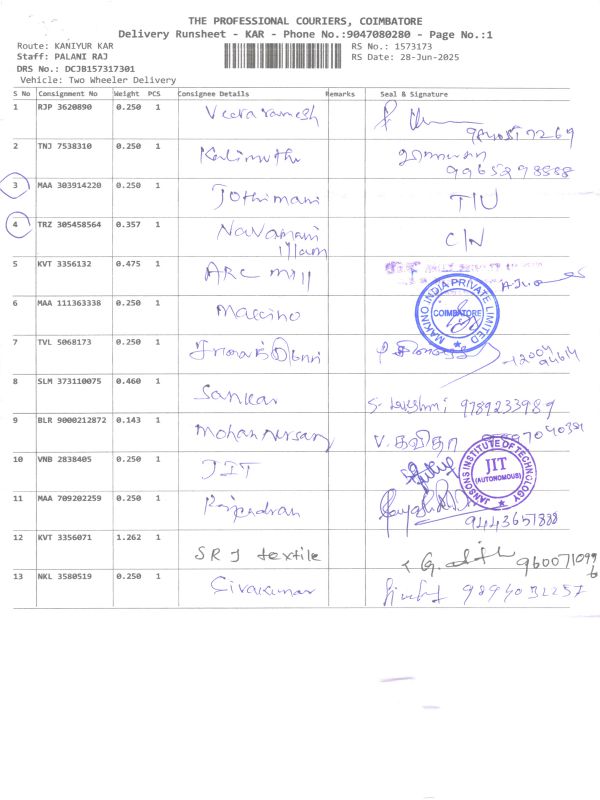 THE PROFESSIONAL COURIERS, COIMBATORE
Delivery Runsheet - KAR - Phone No.:9047080280 - Page No.:1
Route: KANIYUR KAR
RS No.: 1573173
Staff: PALANI RAJ
RS Date: 28-Jun-2025
DRS No.: DCJB157317301
Vehicle: Two Wheeler Delivery
S No Consignment No Weight PCS Consignee Details Remarks Seal & Signature
1 RJP 3620890 0.250 1 Veeraramesh
2 TNJ 7538310 0.250 1 Kalimuthu
9965298888
3 MAA 303914220 0.250 1 Jothimani T/U
4 TRZ 305458564 0.357 1 Navamani C/N
5 KVT 3356132 0.475 1 ARC mill
6 MAA 111363338 0.250 1 Makino
MAKINO INDIA PRIVATE LIMITED
COIMBATORE
7 TVL 5068173 0.250 1
8 SLM 373110075 0.460 1 Sankar S. Lakshmi 9789233989
9 BLR 9000212872 0.143 1 Mohan V. கவிதா
10 VNB 2838405 0.250 1 JIT
JANSONS INSTITUTE OF TECHNOLOGY
JIT
(AUTONOMOUS)
11 MAA 709202259 0.250 1 Rajendran
9443651888
12 KVT 3356071 1.262 1 SRJ textile 9600710996
13 NKL 3580519 0.250 1 Sivakumar 9894032257